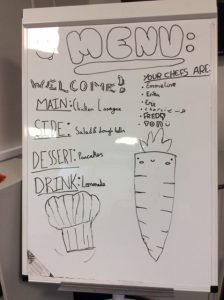 MENU:
WELCOME!
MAIN: Chicken Lasagne
SIDE: Salad & dough balls
DESSERT: Pancakes
DRINK: Lemonade
YOUR CHEFS ARE
• Emmeline
• Erin
• FREDDY